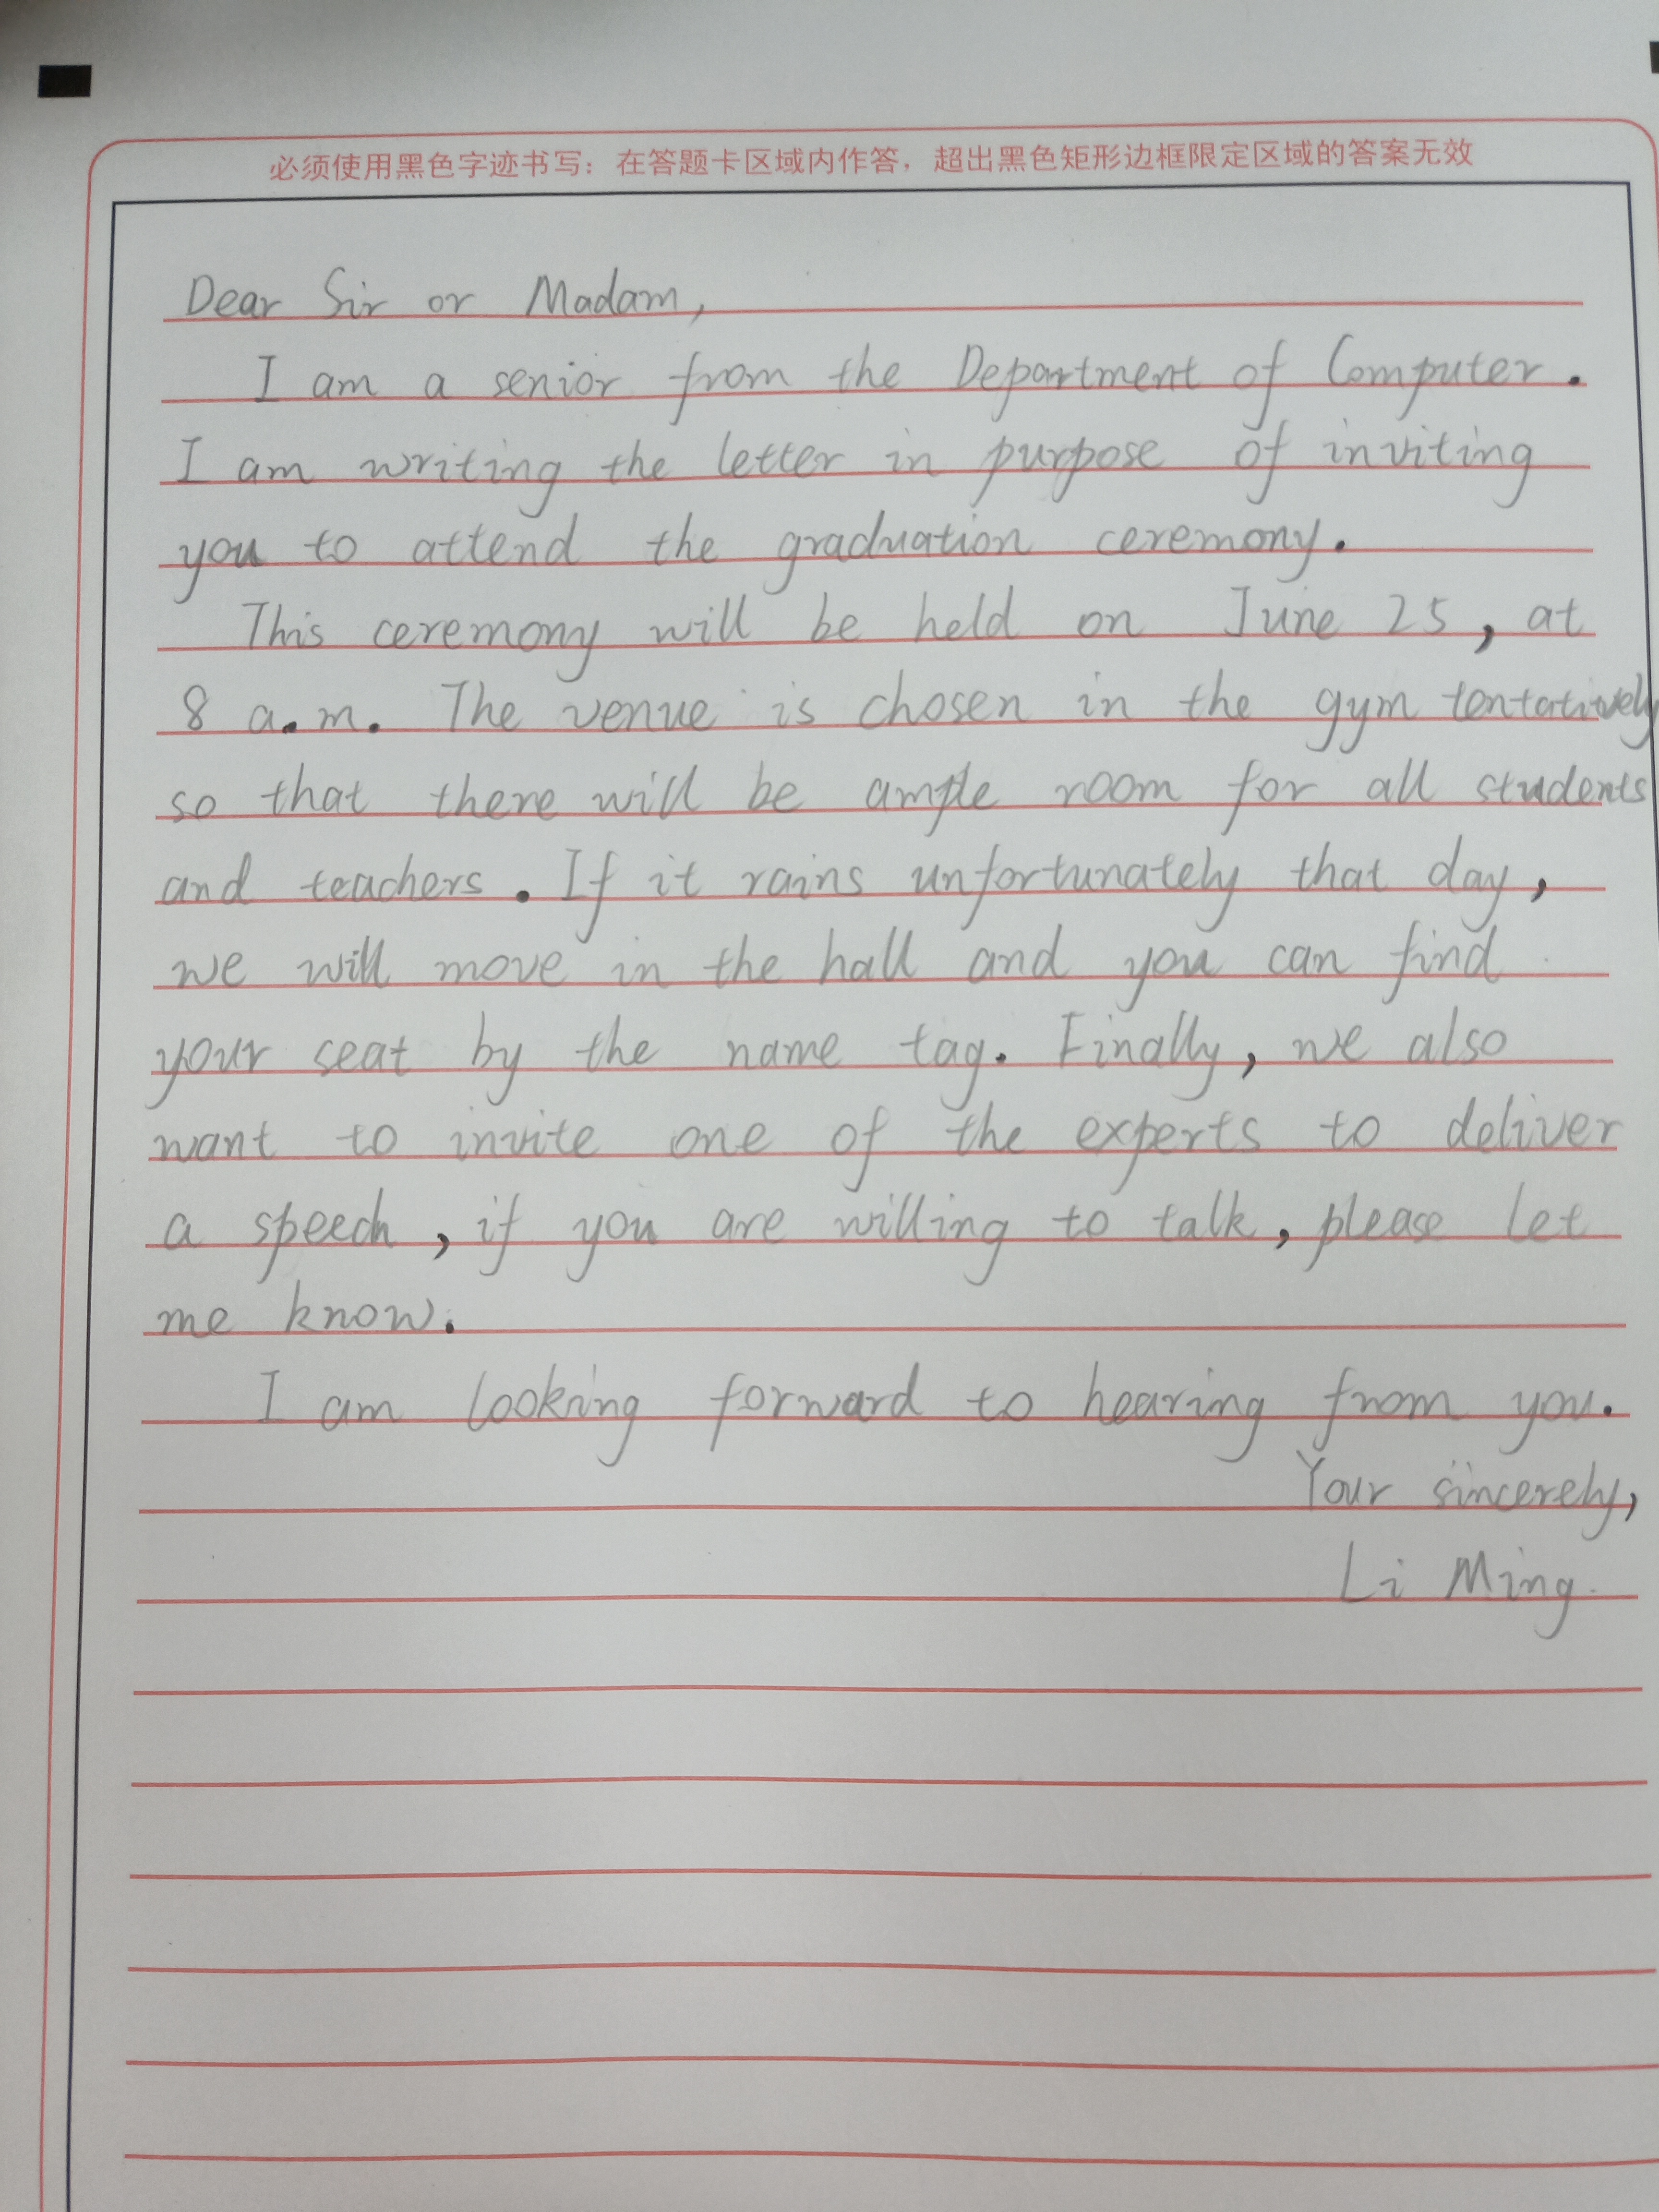 必须使用黑色字迹书写：在答题卡区域内作答，超出黑色矩形边框限定区域的答案无效
Dear Sir or Madam,
I am a senior from the Department of Computer.
I am writing the letter in purpose of inviting
you to attend the graduation ceremony.
This ceremony will be held on June 25, at
8 a.m. The venue is chosen in the gym tentatively
so that there will be ample room for all students
and teachers. If it rains unfortunately that day,
we will move in the hall and you can find
your seat by the name tag. Finally, we also
want to invite one of the experts to deliver
a speech, if you are willing to talk, please let
me know.
I am looking forward to hearing from you.
Your sincerely,
Li Ming.